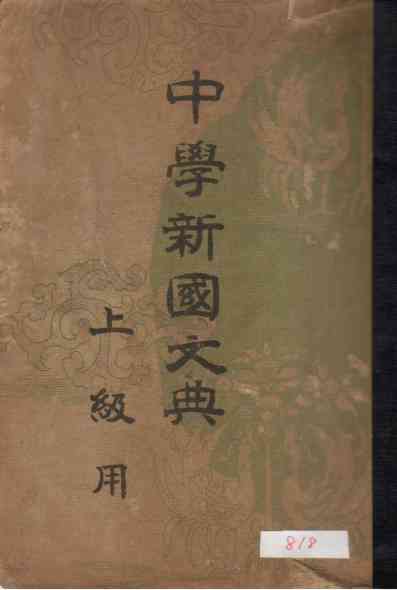 中學新國文典
上級用
818